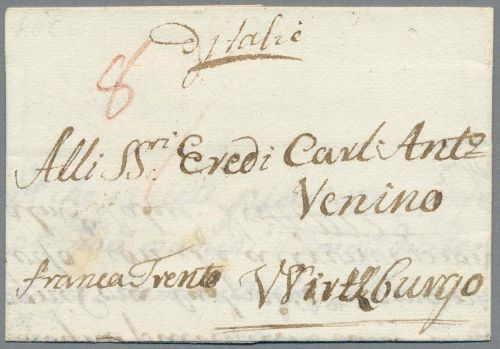 d'Italie
8
Alli SS.ri Eredi Carl: Ant:o
Venino
franca Trento Wirtzburgo